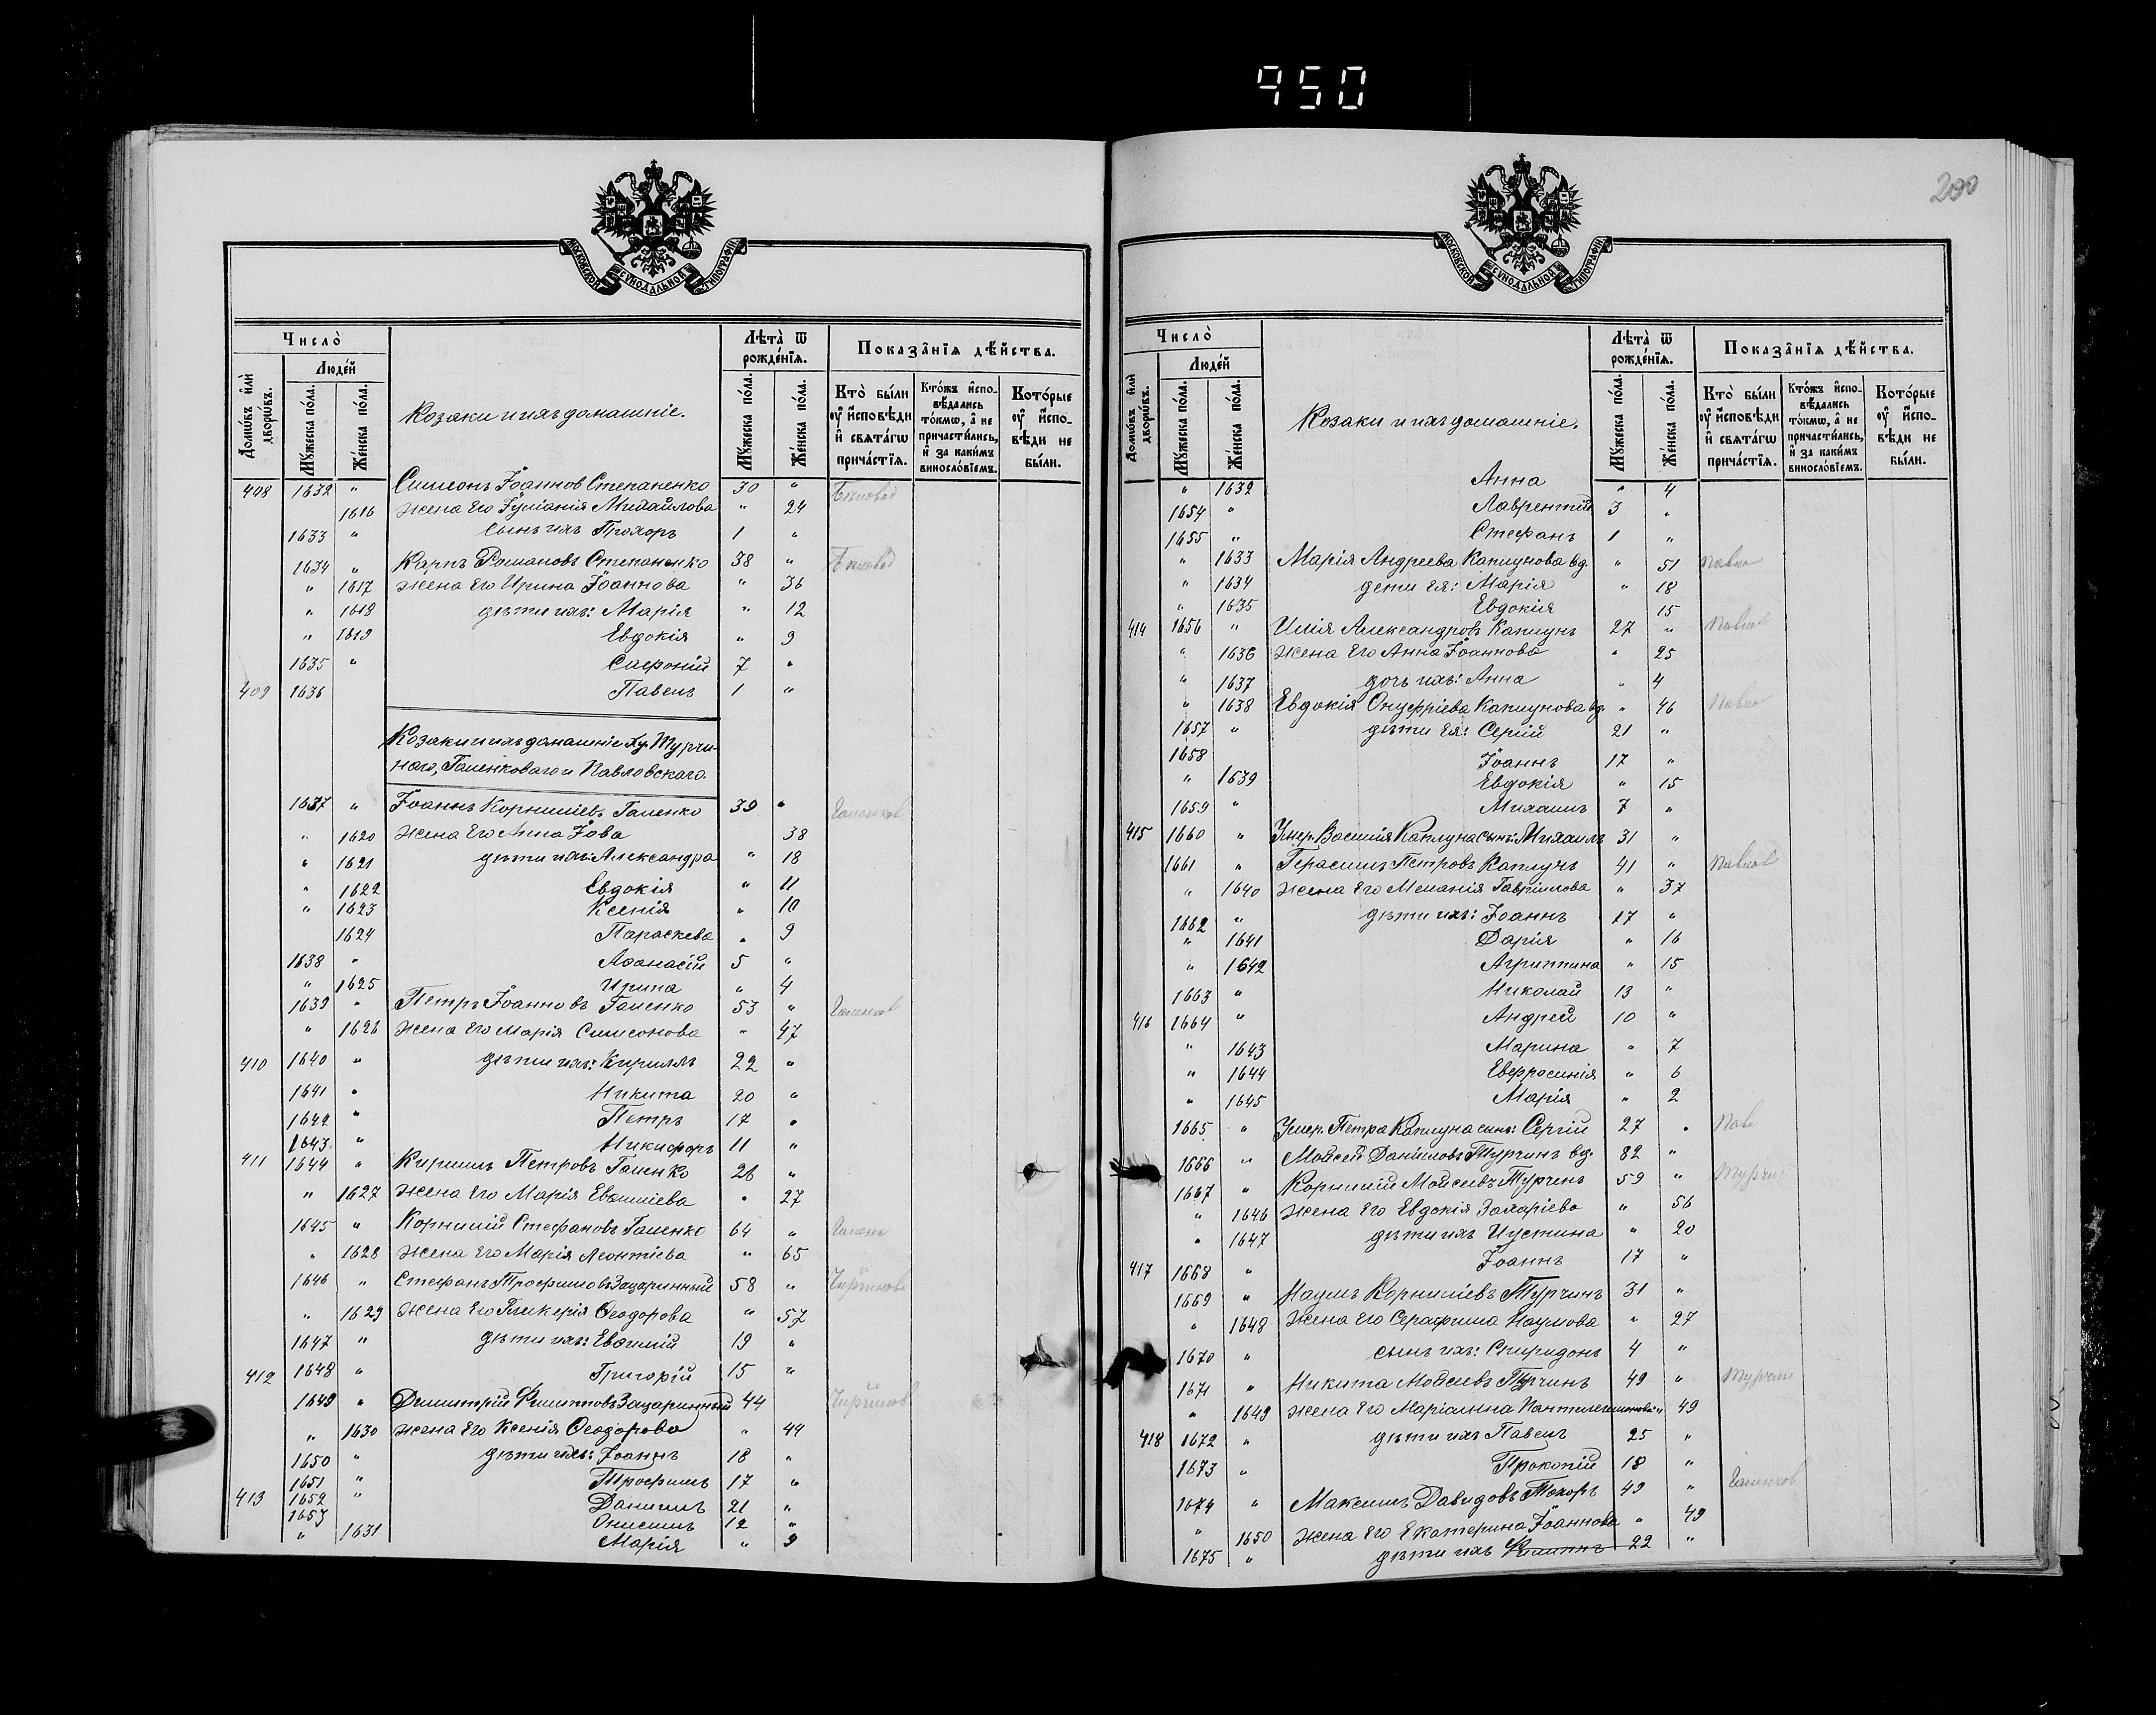 950
МОСКОВСКОЙ СѴНОДАЛЬНОЙ ТИПОГРАФІИ
Число̀
Домѡ́въ и҆лѝ дворѡ́въ.
Люде́й
Мꙋ́жеска по́ла.
Же́нска по́ла.
Козаки и ихъ домашніе.
Лѣта̀ ѿ рожде́нїѧ.
Мꙋ́жеска по́ла.
Же́нска по́ла.
Показа̑нїѧ дѣ́йства.
Кто̀ бы́ли оу҆ и҆сповѣди и҆ свѧта́гѡ прича́стїѧ.
Кто́жъ и҆сповѣдались то́кмѡ, а҆ не причасти́лись, и҆ за каки́мъ винносло́вїемъ.
Кото́рые оу҆ и҆сповѣди не бы́ли.
408 1632 " Симеонъ Іоанновъ Степаненко 30 "
1616 жена его Іуліанія Михайлова " 24
1633 " сынъ ихъ Прохоръ 1 "
1634 " Карпъ Романовъ Степаненко 38 "
" 1617 жена его Ирина Іоаннова " 36
" 1618 дѣти ихъ: Марія " 12
" 1619 Евдокія " 9
1635 " Сафроній 7 "
409 1636 Павелъ 1 "
Козаки и ихъ домашніе ху. Турчи-
наго, Галенковаго и Павловскаго.
1637 " Іоаннъ Корниліевъ Галенко 39 "
" 1620 жена его Анна Іова 38
" 1621 дѣти ихъ: Александра " 18
" 1622 Евдокія " 11
" 1623 Ксенія " 10
1624 Параскева " 9
1638 " Аѳанасій 5 "
" 1625 Ирина " 4
1639 " Петръ Іоанновъ Галенко 53 "
" 1626 жена его Марія Симеонова " 47
410 1640 " дѣти ихъ: Кириллъ 22 "
1641 " Никита 20 "
1642 " Петръ 17 "
1643 " Никифоръ 11 "
411 1644 " Кириллъ Петровъ Галенко 26 "
" 1627 жена его Марія " 27
1645 " Корнилій Стефановъ Галенко 64 "
" 1628 жена его Марія Леонтіева " 65
1646 " Стефанъ Трофимовъ Зацаринный 58 "
" 1629 жена его Гликерія Ѳеодорова " 57
1647 " дѣти ихъ: Евѳимій 19 "
412 1648 " Григорій 15 "
1649 " Димитрій Филипповъ Зацаринный 44
" 1630 жена его Ксенія Ѳеодорова " 44
1650 " дѣти ихъ: Іоаннъ 18 "
1651 " Трофимъ 17 "
413 1652 " Даниилъ 21 "
1653 Онисимъ 12 "
" 1631 Марія " 9
200
МОСКОВСКОЙ СѴНОДАЛЬНОЙ ТИПОГРАФІИ
Число̀
Домѡ́въ и҆лѝ дворѡ́въ.
Люде́й
Мꙋ́жеска по́ла.
Же́нска по́ла.
Козаки и ихъ домашніе.
Лѣта̀ ѿ рожде́нїѧ.
Мꙋ́жеска по́ла.
Же́нска по́ла.
Показа̑нїѧ дѣ́йства.
Кто̀ бы́ли оу҆ и҆сповѣди и҆ свѧта́гѡ прича́стїѧ.
Кто́жъ и҆сповѣдались то́кмѡ, а҆ не причасти́лись, и҆ за каки́мъ винносло́вїемъ.
Кото́рые оу҆ и҆сповѣди не бы́ли.
" 1632 Анна " 4
1654 " Лаврентій 3 "
1655 " Стефанъ 1 "
" 1633 Марія Андреева Каплунова вд. " 51
" 1634 дети ея: Марія " 18
" 1635 Евдокія 15
414 1656 " Илія Александровъ Каплунъ 27 "
" 1636 жена его Анна Іоаннова " 25
" 1637 дочь ихъ: Анна " 4
" 1638 Евдокія Онуфріева Каплунова вд. " 46
1657 " дѣти ея: Сергій 21 "
1658 Іоаннъ 17 "
" 1639 Евдокія " 15
1659 " Михаилъ 7 "
415 1660 " Умер. Василія Каплуна сынъ: Михаилъ 31 "
1661 " Герасимъ Петровъ Каплунъ 41 "
" 1640 жена его Меланія Гавріилова " 37
1662 " дѣти ихъ: Іоаннъ 17 "
" 1641 Дарія " 16
" 1642 Агриппина " 15
1663 " Николай 13 "
416 1664 " Андрей 10 "
" 1643 Марина " 7
" 1644 Евфросинія " 6
" 1645 Марія " 2
1665 " Умер. Петра Каплуна сынъ: Сергій 27 "
1666 " Мойсей Даніиловъ Турчинъ вд. 82 "
1667 " Корнилій Мойсеевъ Турчинъ 59 "
" 1646 жена его Евдокія Захаріева " 56
" 1647 дѣти ихъ Иустина " 20
417 1668 " Іоаннъ 17 "
1669 " Наумъ Корниліевъ Турчинъ 31 "
" 1648 жена его Серафима Наумова " 27
1670 " сынъ ихъ: Спиридонъ 4 "
1671 " Никита Мойсеевъ Турчинъ 49 "
" 1649 жена его Маріанна Пантелеимонова " 49
418 1672 " дѣти ихъ Павелъ 25 "
1673 " Прокопій 18 "
1674 " Максимъ Давидовъ Токоръ 49 "
" 1650 жена его Екатерина Іоаннова " 49
1675 " дѣти ихъ Филиппъ 22 "